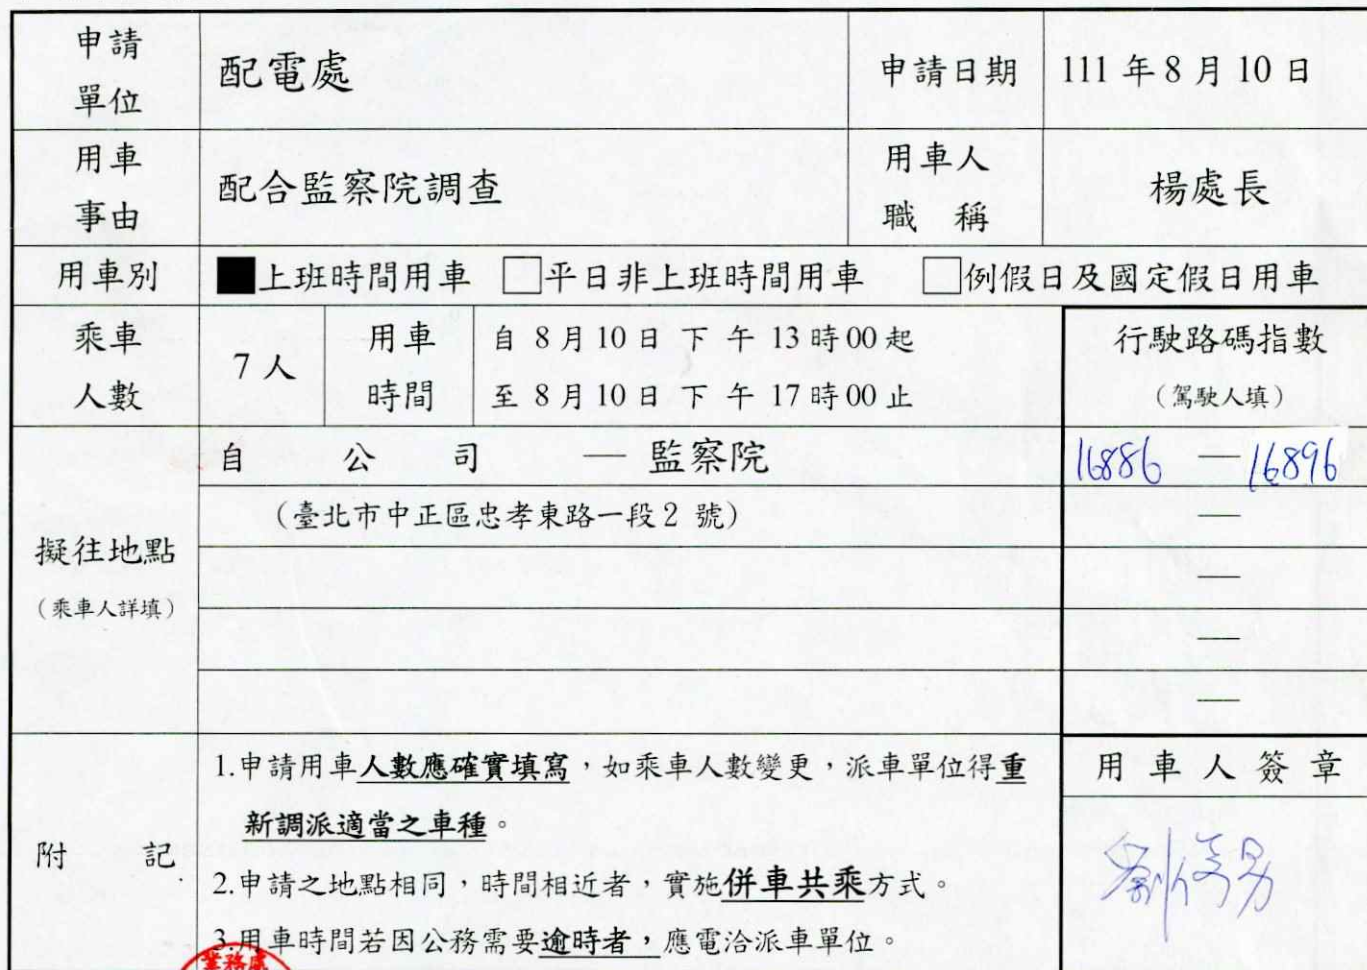 申請單位 配電處 申請日期 111 年 8 月 10 日
用車事由 配合監察院調查 用車人職稱 楊處長
用車別 ■上班時間用車 □平日非上班時間用車 □例假日及國定假日用車
乘車人數 7 人 用車時間 自 8 月 10 日 下 午 13 時 00 起
至 8 月 10 日 下 午 17 時 00 止
行駛路碼指數
（駕駛人填）
擬往地點
（乘車人詳填）
自 公 司 — 監察院 16886 — 16896
（臺北市中正區忠孝東路一段 2 號） —
—
—
—
附 記
1.申請用車人數應確實填寫，如乘車人數變更，派車單位得重
新調派適當之車種。
2.申請之地點相同，時間相近者，實施併車共乘方式。
3.用車時間若因公務需要逾時者，應電洽派車單位。
用 車 人 簽 章
業務處